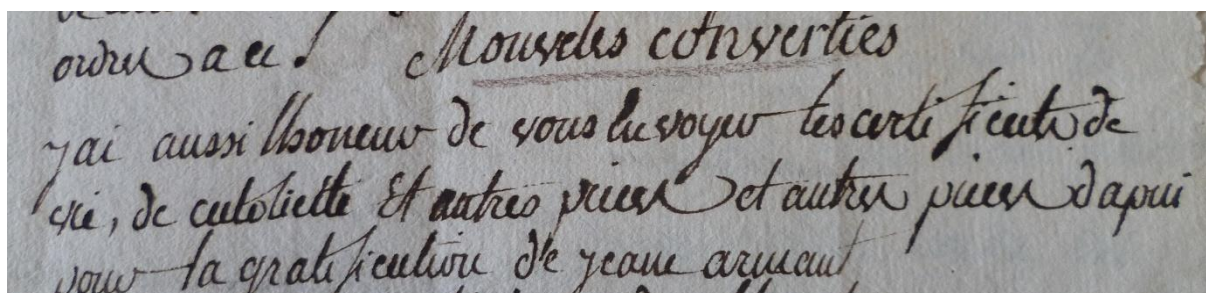 ordres a ce. Nouvelles converties
j'ai aussi lhoneur de vous envoyer les certificats de
vie, de catolicité Et autres pieces et autres pieces d'apui
pour la gratification de jeane armant